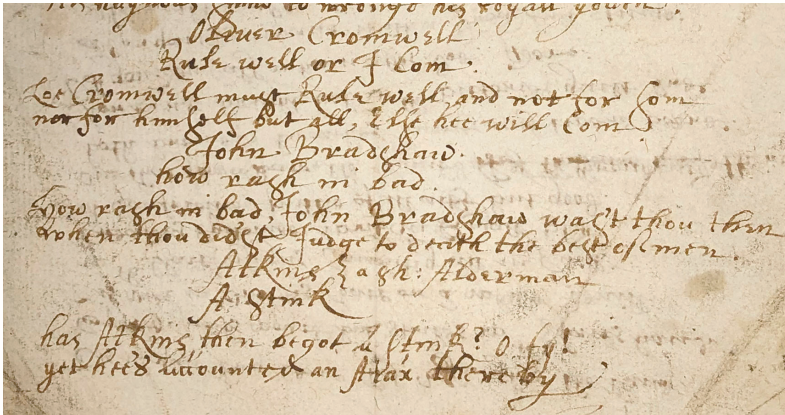 his haynous crime to wronge his royall
Oliver Cromwell
Rule well or I Com.
Loe Cromwell must Rule well, and not for som
nor for himself but all, Else hee will Com
John Bradshaw.
how rash in bad.
How rash in bad, John Bradshaw wast thou then
when thou didst Judge to death the best of men.
Atkins Alderman
A stink
has Atkins then begot a stink? O fy!
yet hee's accounted an Aiax thereby